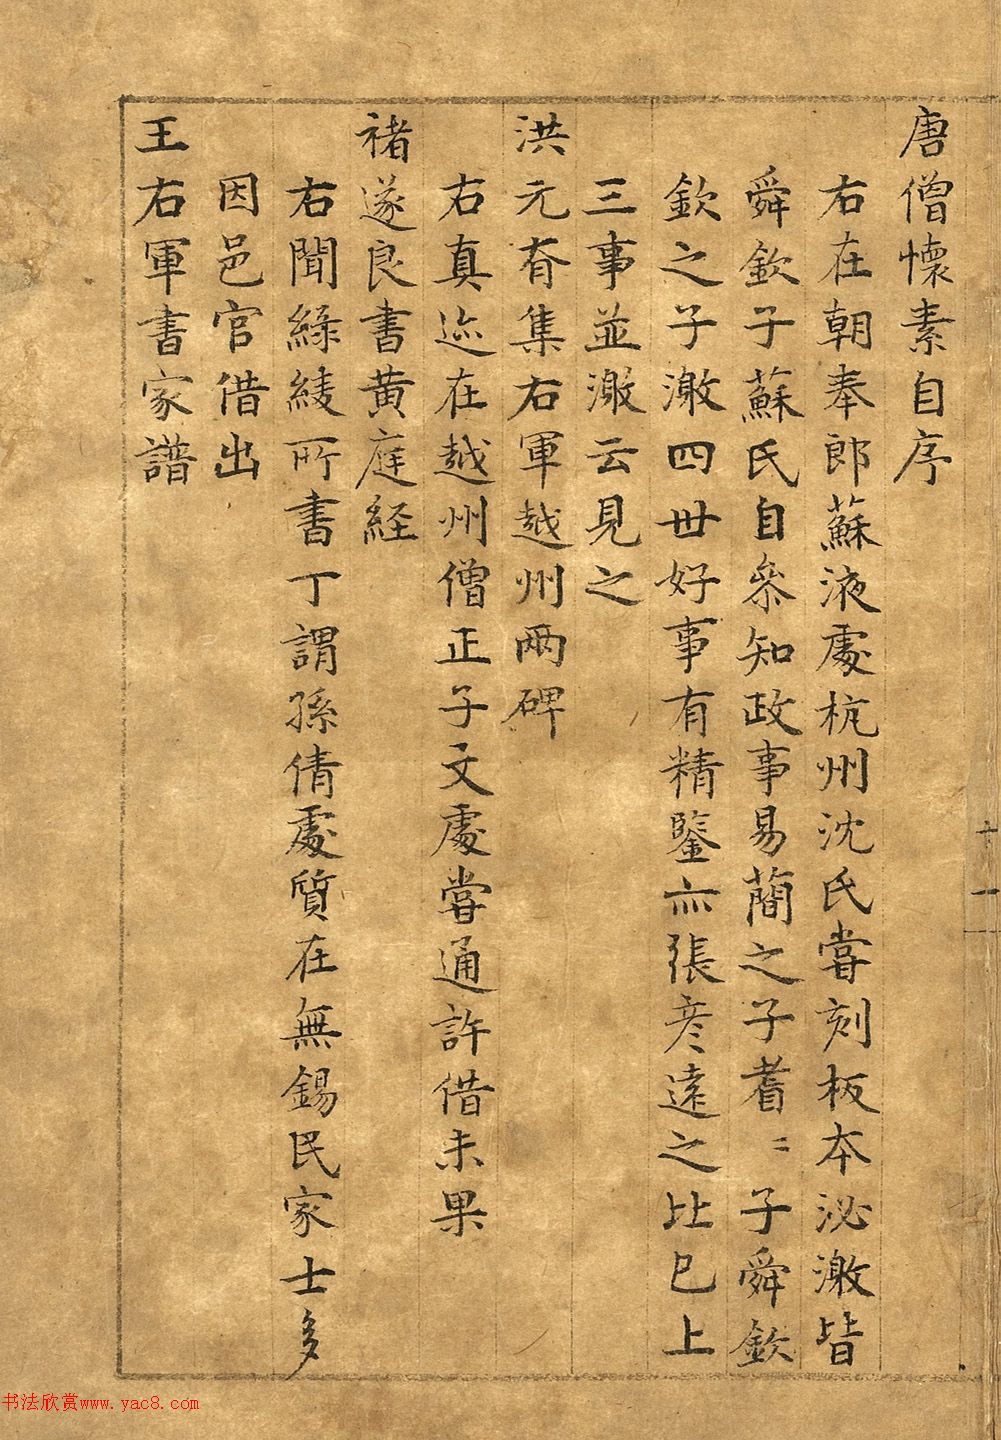 唐僧懷素自序
右在朝奉郎蘇液處杭州沈氏嘗刻板本泌澂皆
舜欽子蘇氏自叅知政事易簡之子耆〻子舜欽
欽之子澂四世好事有精鑒亦張彦遠之比已上
三事並澂云見之
洪元眘集右軍越州兩碑
右真迹在越州僧正子文處嘗通許借未果
褚遂良書黄庭経
右聞綠綾所書丁謂孫倩處質在無錫民家士多
因邑官借出
王右軍書家譜
十一
书法欣赏www.yac8.com